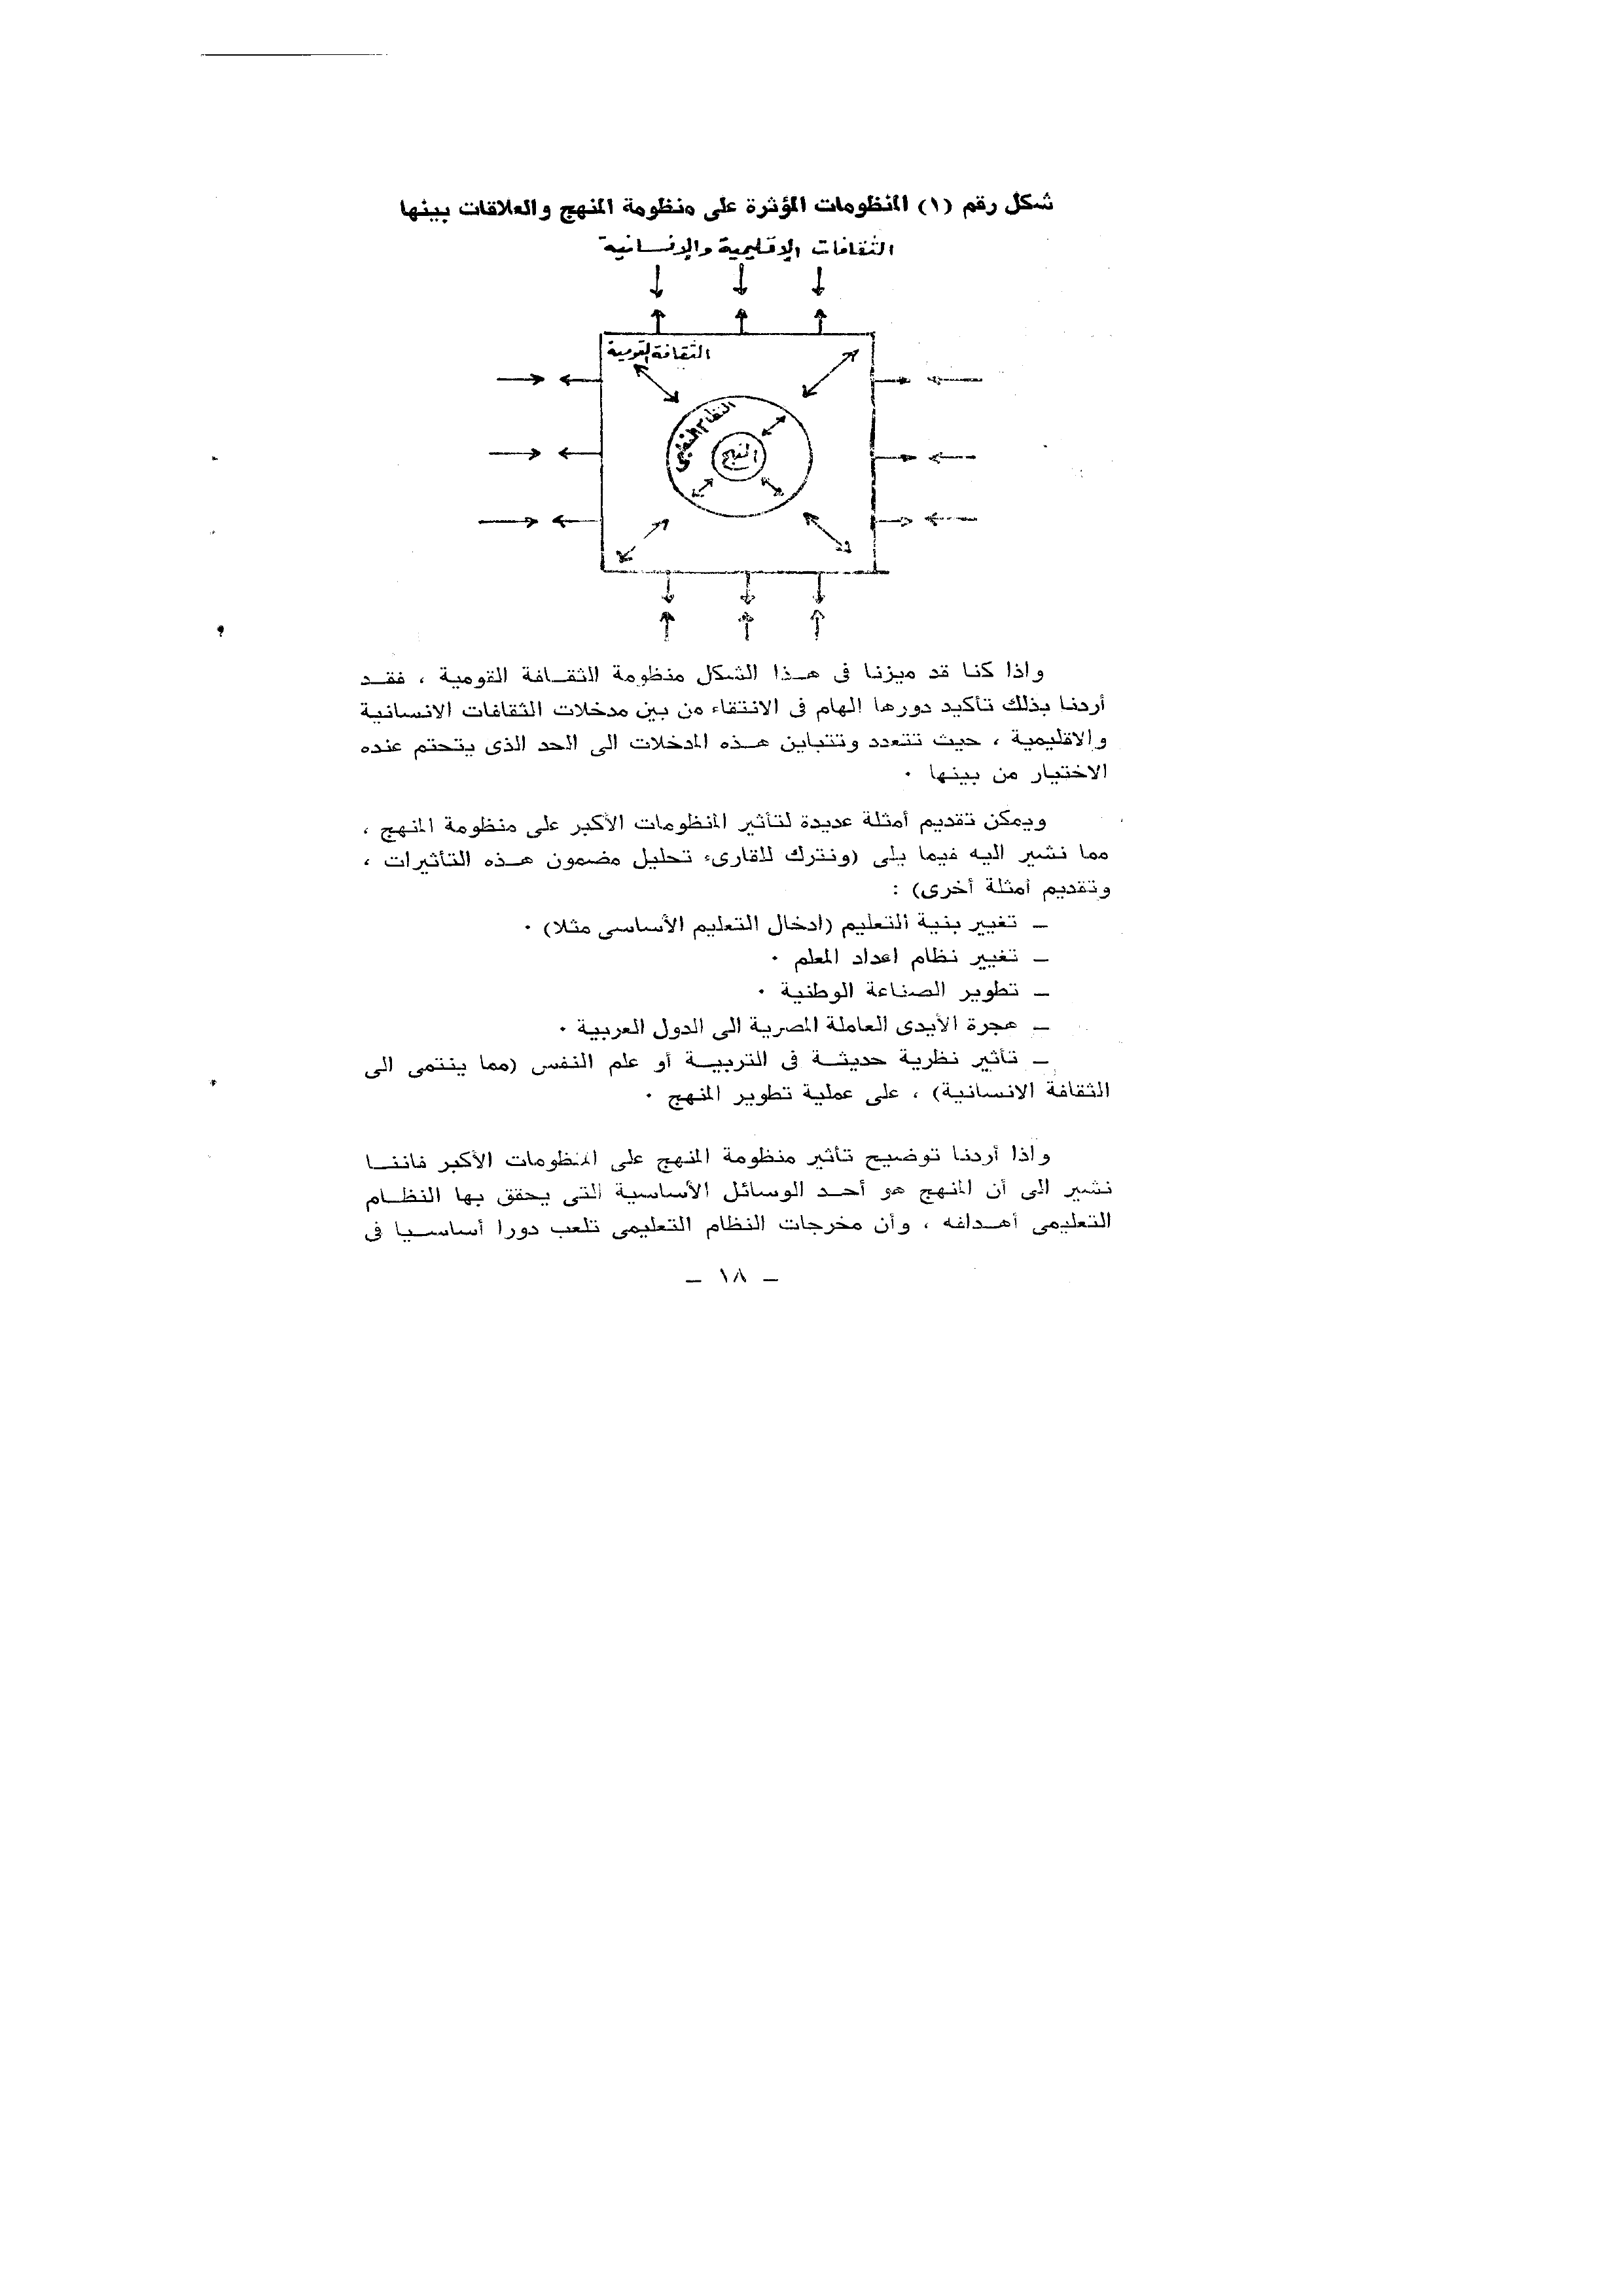 شكل رقم (١) المنظومات المؤثرة على منظومة المنهج والعلاقات بينها
الثقافات الإقليمية والإنسانية
الثقافة القومية
النظام التعليمى
المنهج
واذا كنا قد ميزنا فى هـذا الشكل منظومة الثقـافة القومية ، فقـد
أردنا بذلك تأكيد دورها الهام فى الانتقاء من بين مدخلات الثقافات الانسانية
والاقليمية ، حيث تتعدد وتتباين هـذه المدخلات الى الحد الذى يتحتم عنده
الاختيار من بينها ٠
ويمكن تقديم أمثلة عديدة لتأثير المنظومات الأكبر على منظومة المنهج ،
مما نشير اليه فيما يلى (ونترك للقارىء تحليل مضمون هـذه التأثيرات ،
وتقديم أمثلة أخرى) :
ـ تغيير بنية التعليم (ادخال التعليم الأساسى مثلا) ٠
ـ تغيير نظام اعداد المعلم ٠
ـ تطوير الصناعة الوطنية ٠
ـ هجرة الأيدى العاملة المصرية الى الدول العربية ٠
ـ تأثير نظرية حديثـة فى التربيـة أو علم النفس (مما ينتمى الى
الثقافة الانسانية) ، على عملية تطوير المنهج ٠
واذا أردنا توضيح تأثير منظومة المنهج على المنظومات الأكبر فاننـا
نشير الى أن المنهج هو أحـد الوسائل الأساسية التى يحقق بها النظـام
التعليمى أهـدافه ، وأن مخرجات النظام التعليمى تلعب دورا أساسـيا فى
ـ ١٨ ـ